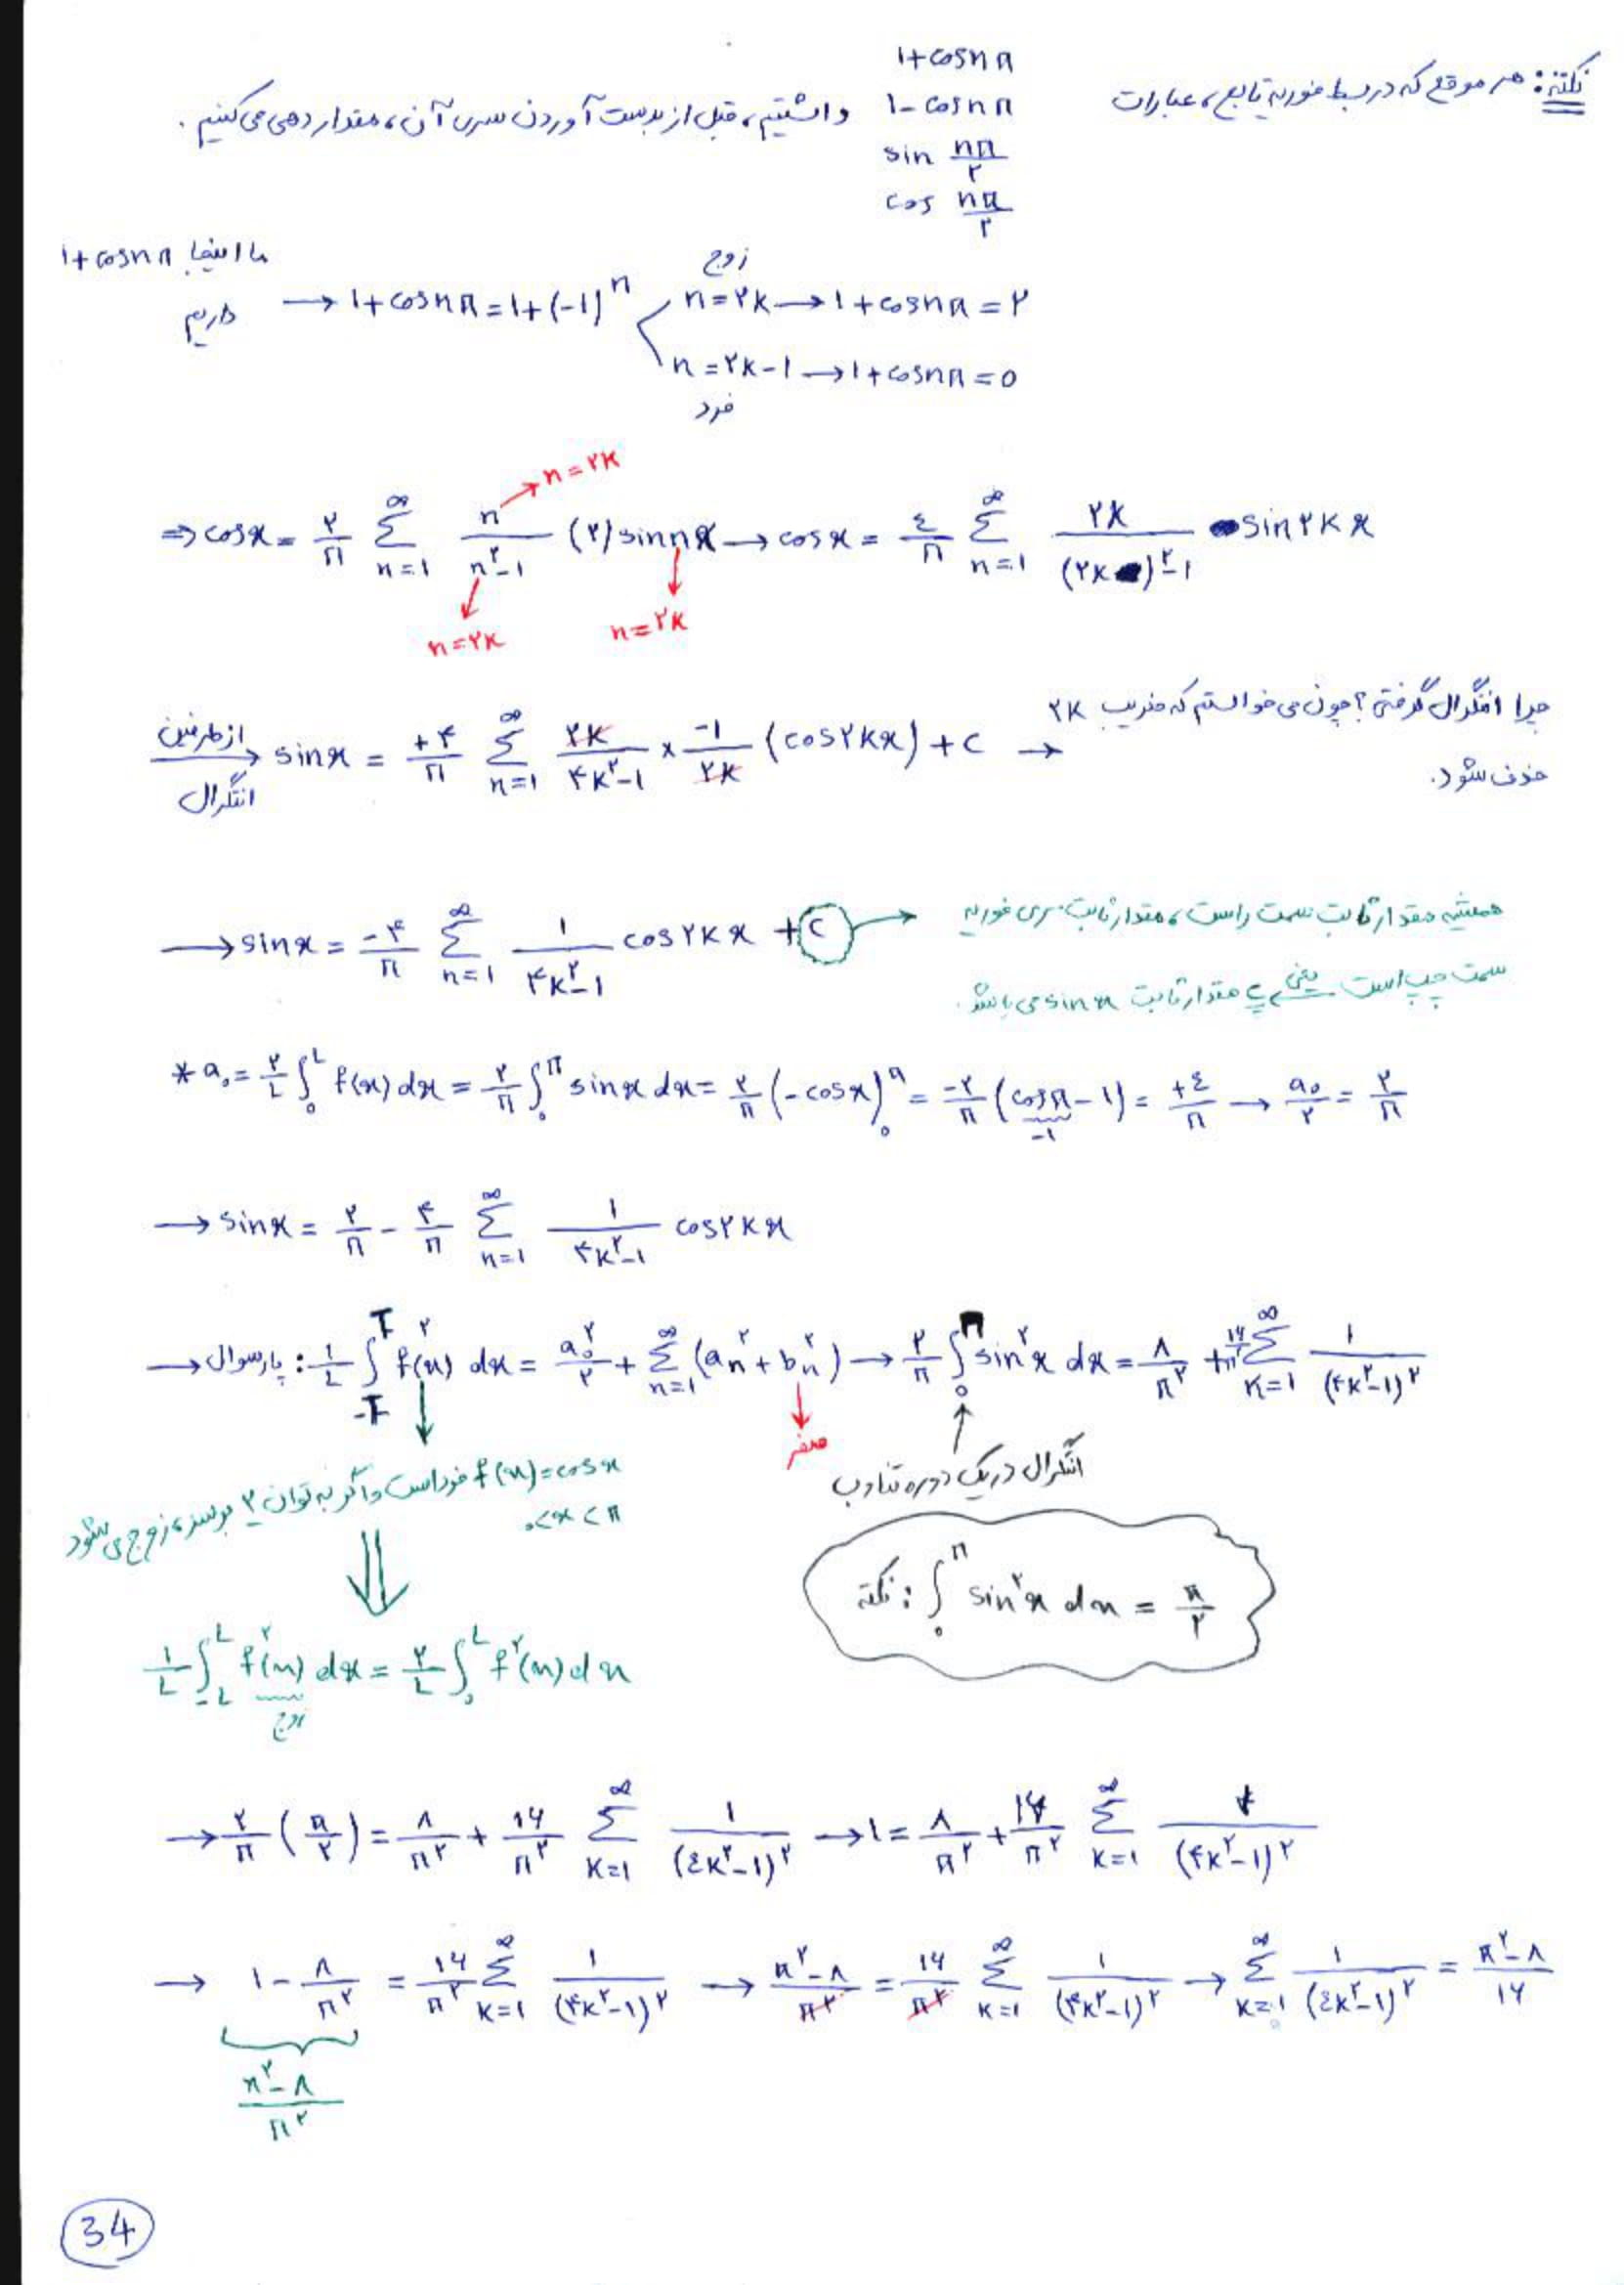 نکته: هر موقع که در بسط فوریه تابع، عبارات 1+cosnπ
1-cosnπ
sin nπ/۲
cos nπ/۲
داشتیم، قبل از بدست آوردن سری آن، مقداردهی می‌کنیم.
ما اینجا 1+cosnπ داریم → 1+cosnπ = 1+(-1)^n
زوج n=۲k → 1+cosnπ = ۲
n=۲k-1 → 1+cosnπ = 0 فرد
n=۲k
⇒ cosx = ۲/π Σ_{n=1}^{∞} n/(n^۲-1) (۲) sin nx → cosx = ٤/π Σ_{n=1}^{∞} ۲k/((۲k)^۲-1) sin۲kx
n=۲k n=۲k
از طرفین انتگرال → sinx = +۴/π Σ_{n=1}^{∞} ۲k/(۴k^۲-1) × -1/۲k (cos۲kx) + c → چرا انتگرال گرفتی؟ چون می‌خواستم که ضریب ۲k
حذف شود.
→ sinx = -۴/π Σ_{n=1}^{∞} 1/(۴k^۲-1) cos۲kx + c → همیشه مقدار ثابت سمت راست، مقدار ثابت سری فوریه
سمت چپ است یعنی c مقدار ثابت sinx می باشد.
* a₀ = ۲/L ∫_0^L f(x) dx = ۲/π ∫_0^π sinx dx = ۲/π (-cosx)_0^π = -۲/π (cosπ - 1) = +٤/π → a₀/۲ = ۲/π
-1
→ sinx = ۲/π - ۴/π Σ_{n=1}^{∞} 1/(۴k^۲-1) cos۲kx
→ پارسوال: 1/L ∫_{-T}^{T} f^۲(x) dx = a₀^۲/۲ + Σ_{n=1}^{∞} (a_n^۲ + b_n^۲) → ۲/π ∫_0^π sin^۲x dx = ۸/π^۲ + ۱۶/π^۲ Σ_{k=1}^{∞} 1/(۴k^۲-1)^۲
صفر
انتگرال در یک دوره تناوب
f(x)=cosx فرد است و اگر به توان ۲ برسد، زوج می شود
0<x<π
نکته: ∫_0^π sin^۲x dx = π/۲
1/L ∫_{-L}^{L} f^۲(x) dx = ۲/L ∫_0^L f^۲(x) dx
زوج
→ ۲/π (π/۲) = ۸/π^۲ + ۱۶/π^۲ Σ_{k=1}^{∞} 1/(٤k^۲-1)^۲ → 1 = ۸/π^۲ + ۱۶/π^۲ Σ_{k=1}^{∞} 1/(۴k^۲-1)^۲
→ 1 - ۸/π^۲ = ۱۶/π^۲ Σ_{k=1}^{∞} 1/(۴k^۲-1)^۲ → (π^۲-۸)/π^۲ = ۱۶/π^۲ Σ_{k=1}^{∞} 1/(۴k^۲-1)^۲ → Σ_{k=1}^{∞} 1/(٤k^۲-1)^۲ = (π^۲-۸)/۱۶
(π^۲-۸)/π^۲
34